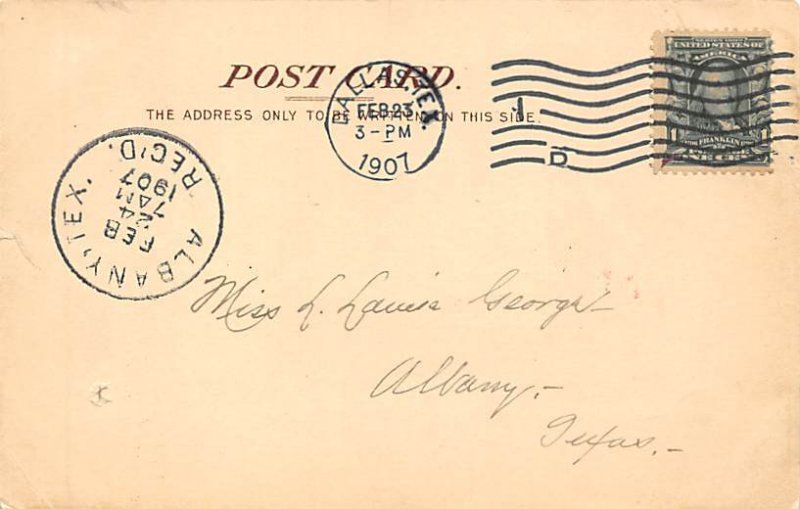 POST CARD.
THE ADDRESS ONLY TO BE WRITTEN ON THIS SIDE.
DALLAS, TEX.
FEB 23
3-PM
1907
1
D
SERIES 1902
UNITED STATES OF
AMERICA
1 FRANKLIN 1
ALBANY, TEX.
FEB
24
7 AM
1907
REC'D.
Miss L. Louise George
Albany,-
Texas.-